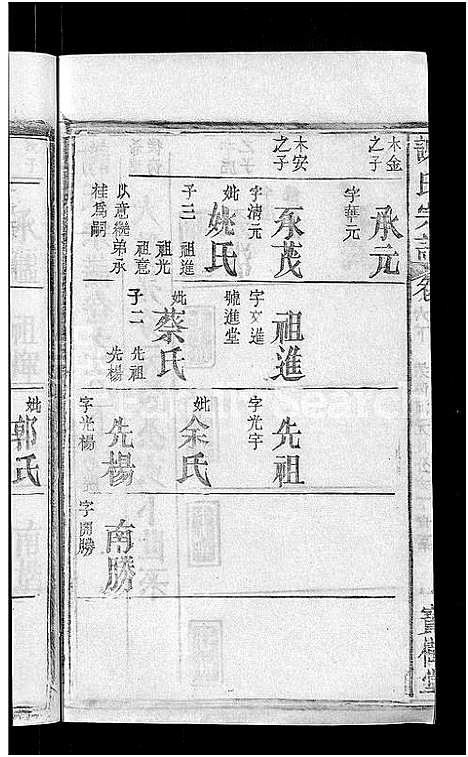 謝氏宗譜
卷
寶樹堂
木金之子
承元
字華元
木安之子
承茂
字清元
妣
姚氏
子三
祖進
祖光
祖意
以意繼弟承桂為嗣
祖進
字文進
號進堂
妣
蔡氏
子二
先祖
先楊
先祖
字光宇
妣
余氏
先楊
字光楊
南勝
字開勝
妣
郭氏